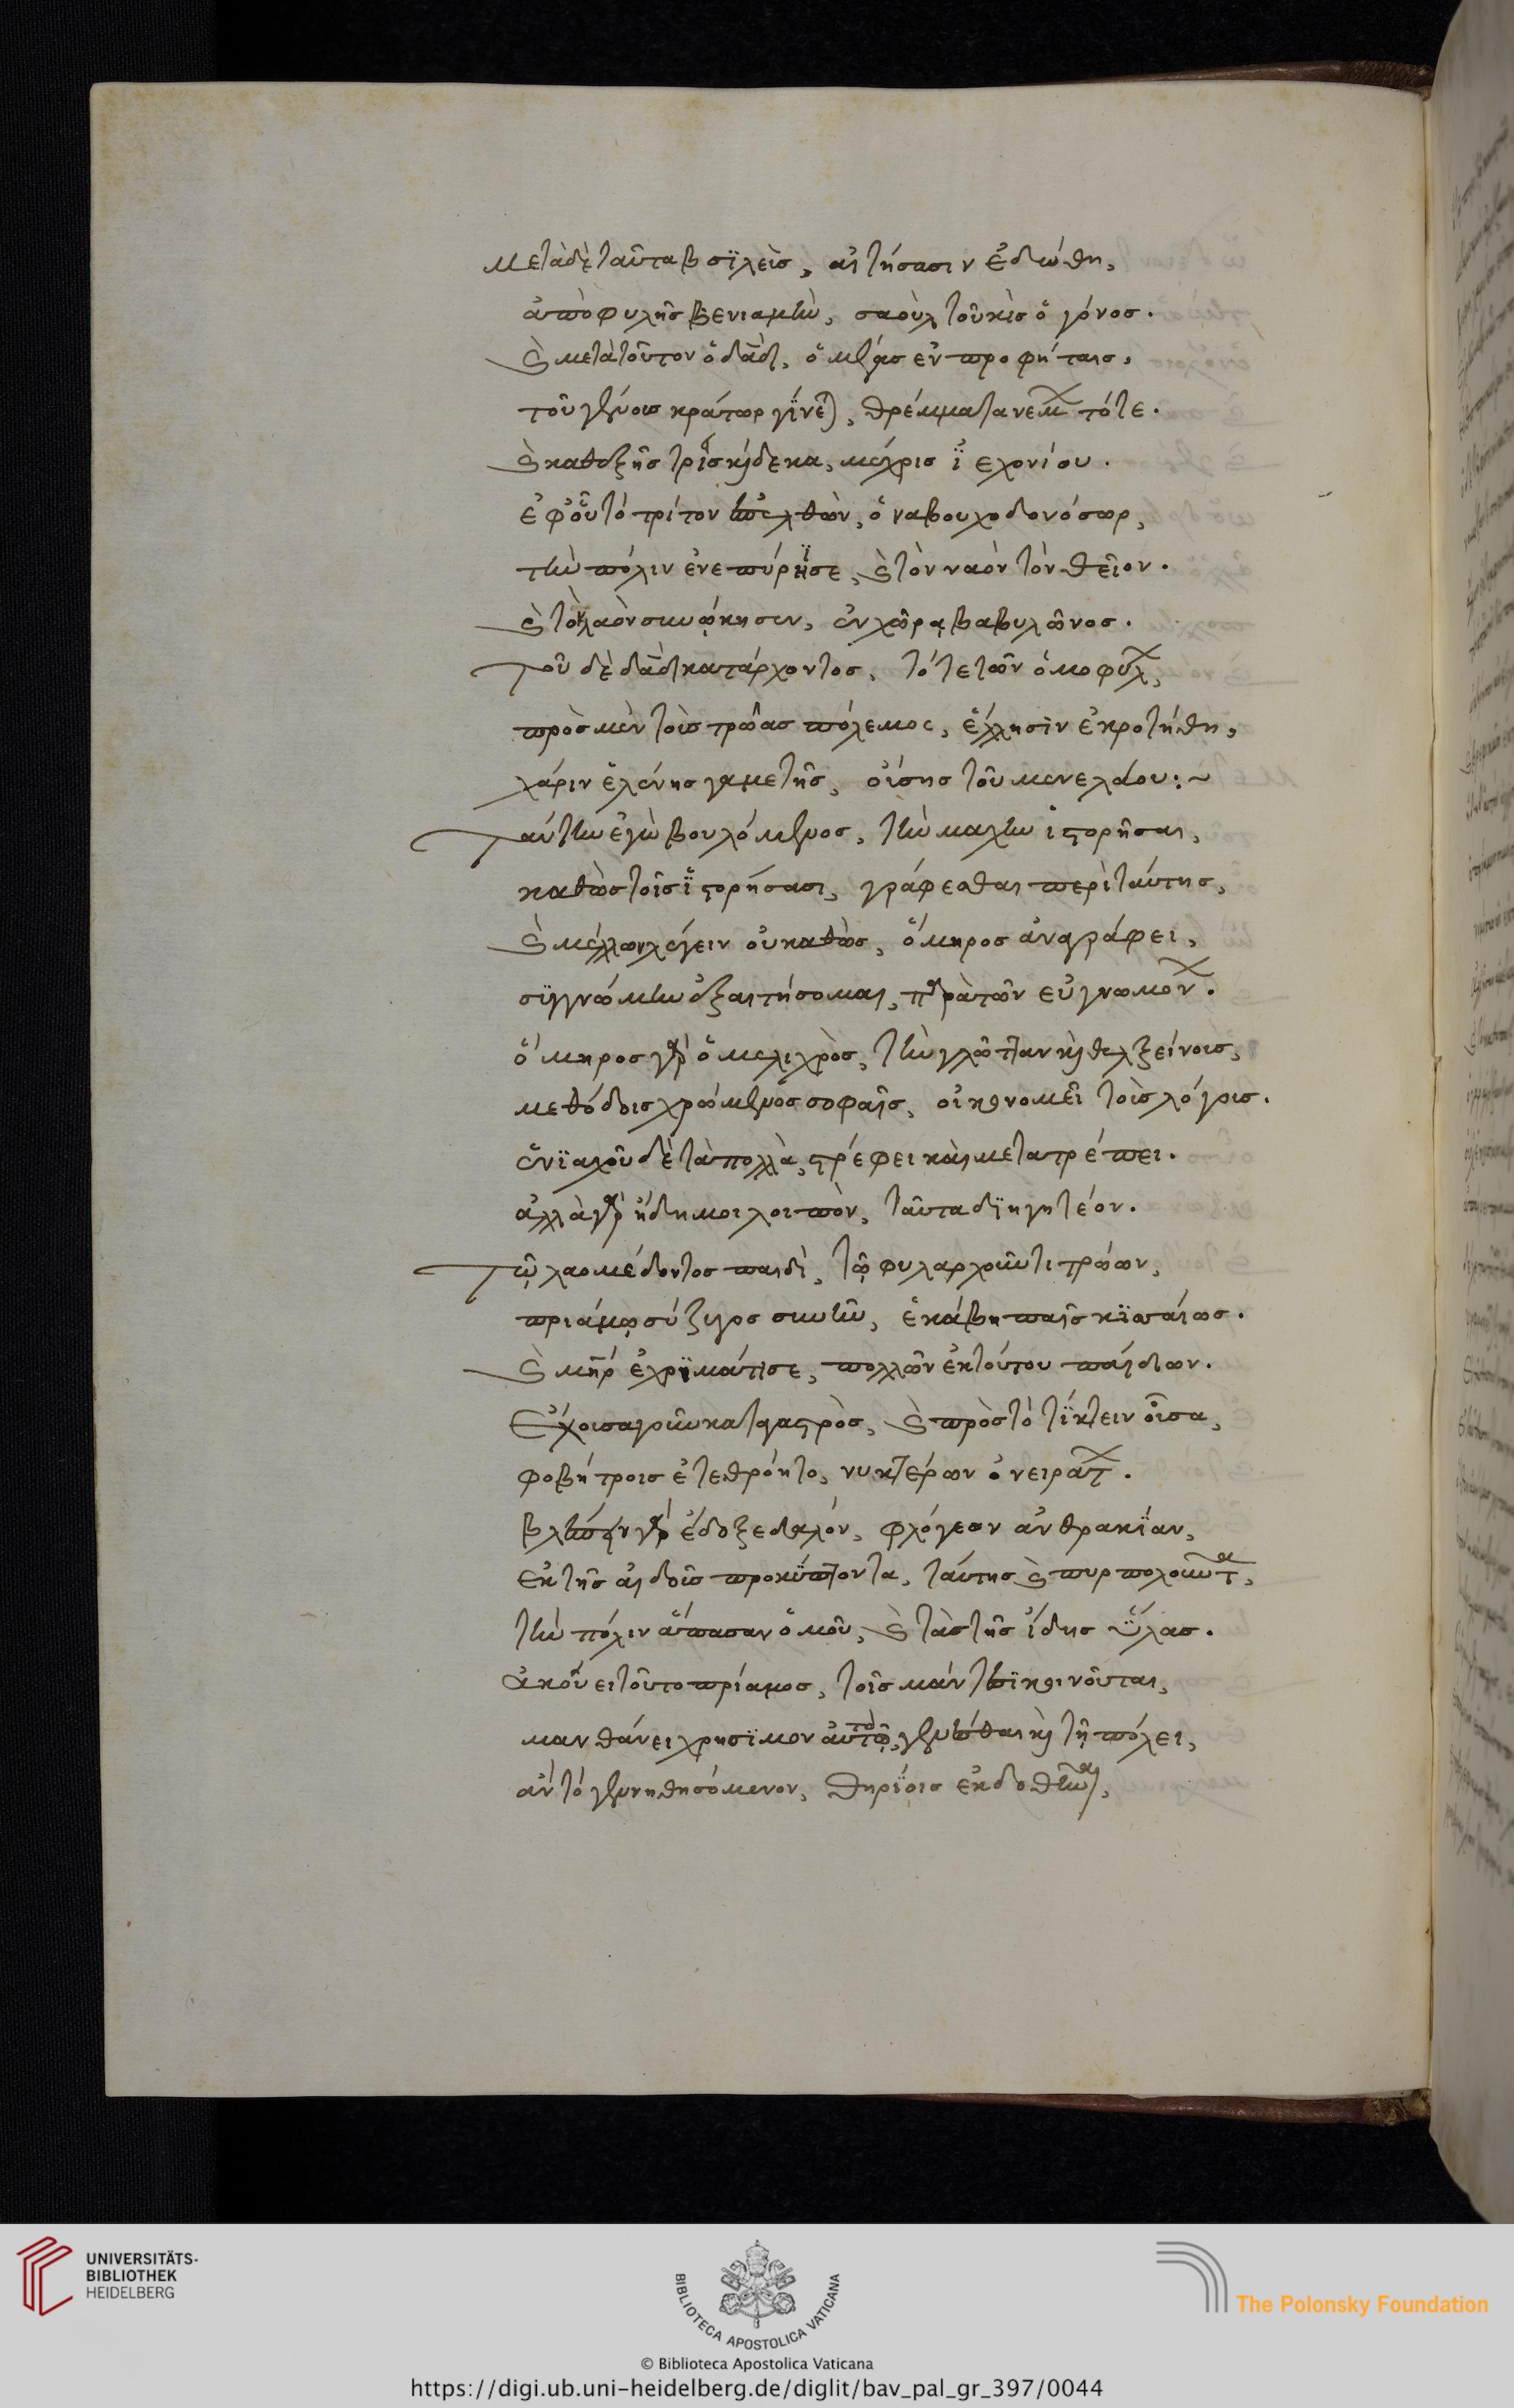 μετὰ δὲ ταῦτα βσϊλεὺς, αἰτήσασιν ἐδώθη,
ἀπὸ φυλῆς βενιαμὴν, σαοὺλ τοῦ κὶς ὁ γόνος.
καὶ μετὰ τοῦτον ὁ δᾱδ, ὁ μέγας ἐν προφήταις,
τοῦ γένους κράτωρ γίνεται, θρέμματα νεμ τότε.
καὶ καθεξῆς τρισκαίδεκα, μέχρις ϊεχονίου.
ἐφ' οὗ τὸ τρίτον ἐπελθὼν, ὁ ναβουχοδονόσωρ,
τὴν πόλιν ἐνεπύρησε, καὶ τὸν ναὸν τὸν θεῖον.
καὶ τὸν λαὸν συνῴκησεν, ἐν χώρᾳ βαβυλῶνος.
Τοῦ δὲ δᾱδ κατάρχοντος, τότε τῶν ὁμοφύλ,
πρὸς μὲν τοὺς τρῶας πόλεμος, ἕλλησιν ἐκροτήθη,
χάριν ἑλένης γαμετῆς, οὔσης τοῦ μενελάου:~
Ταύτην ἐγὼ βουλόμενος, τὴν μάχην ἱστορῆσαι,
καθὼς τοῖς ϊστορήσασι, γράφεσθαι περὶ ταύτης,
καὶ μέλλων λέγειν οὐ καθὼς, ὅμηρος ἀναγράφει,
συγγνώμην ἐξαιτήσομαι, παρὰ τῶν εὐγνωμόν.
ὅμηρος γὰρ ὁ μελιχρὸς, τὴν γλῶτταν καὶ θελξίνους,
μεθόδοις χρώμενος σοφαῖς, οἰκονομεῖ τοὺς λόγους.
ἐνϊαχοῦ δὲ τὰ πολλὰ, στρέφει καὶ μετατρέπει.
ἀλλὰ γὰρ ἤδη μοι λοιπὸν, ταῦτα διηγητέον.
Τῷ λαομέδοντος παιδὶ, τῷ φυλαρχοῦντι τρώων,
πριάμῳ σύζυγος συνῆν, ἑκάβη παῖς κϊσσέως.
καὶ μῆρ ἐχρημάτισε, πολλῶν ἐκ τούτου παίδων.
Ἔχουσα γοῦν κατὰ γαστρὸς, καὶ πρὸς τὸ τίκτειν οὖσα,
φοβήτροις ἐτεθρόητο, νυκτέρων ὀνειράτ.
βλέπειν γὰρ ἔδοξε δαλόν, φλόγεον ἀνθρακίαν,
ἐκ τῆς αἰδοῦς προκύπτοντα, ταύτης καὶ πυρπολοῦντα,
τὴν πόλιν ἅπασαν ὁμοῦ, καὶ τὰς τῆς ἴδης ὕλας.
ἀκούει τοῦτο πρίαμος, τοῖς μάντεσι κοινοῦται,
μανθάνει χρησϊμον αὐτῷ, γενέσθαι καὶ τῇ πόλει,
ἂν τὸ γεννηθησόμενον, θηρίοις ἐκδοθῆναι,
UNIVERSITÄTS-
BIBLIOTHEK
HEIDELBERG
BIBLIOTECA APOSTOLICA VATICANA
The Polonsky Foundation
© Biblioteca Apostolica Vaticana
https://digi.ub.uni-heidelberg.de/diglit/bav_pal_gr_397/0044